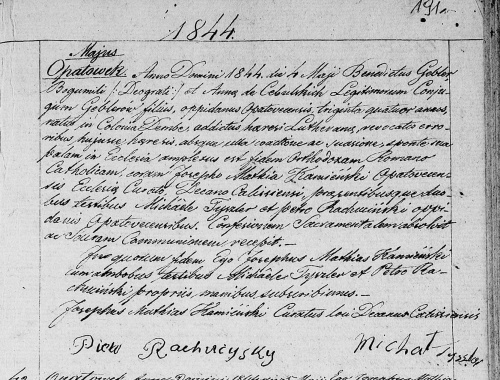 191
1844.
Majus
Opatowek Anno Domini 1844. die 4 Maji Benedictus Gebler
Bogumili /: Deograti :/ et Annæ de Cebulskich Legitimorum Conju
gum Geblerow filius, oppidanus Opatovecensis, triginta quatuor annos,
natus in Colonia Dembe, addictus hæresi Lutheranæ, revocatis erro
ribus hujusce hæresis, absque ulla coactione ac suasione, sponte sua
palam in Ecclesia amplexus est fidem Orthodoxam Romano
Catholicam, coram Josepho Mathia Kamieński Opatovecen
sis Ecclesiæ Curato Decano Calisiensi, præsentibusque duo
bus testibus Michaele Tyxler et Petro Rachuciński oppi
danis Opatovecensibus. Confessionem Sacramentalem absolvit
ac Sacram Communionem recepit. —
In quorum fidem Ego Josephus Mathias Kamieński
cum ambobus testibus Michaele Tyxler et Petro Ra
chuciński propriis manibus subscribimus. —
Josephus Mathias Kamienski Curatus Loci Decanus Calisiensis
Piotr Rachucysky Michał